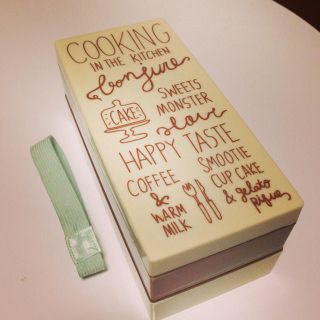 COOKING
IN THE KITCHEN
bonjure
CAKE
SWEETS
MONSTER
HAPPY TASTE
COFFEE
&
WARM
MILK
SMOOTIE
CUP CAKE
& gelato
pique